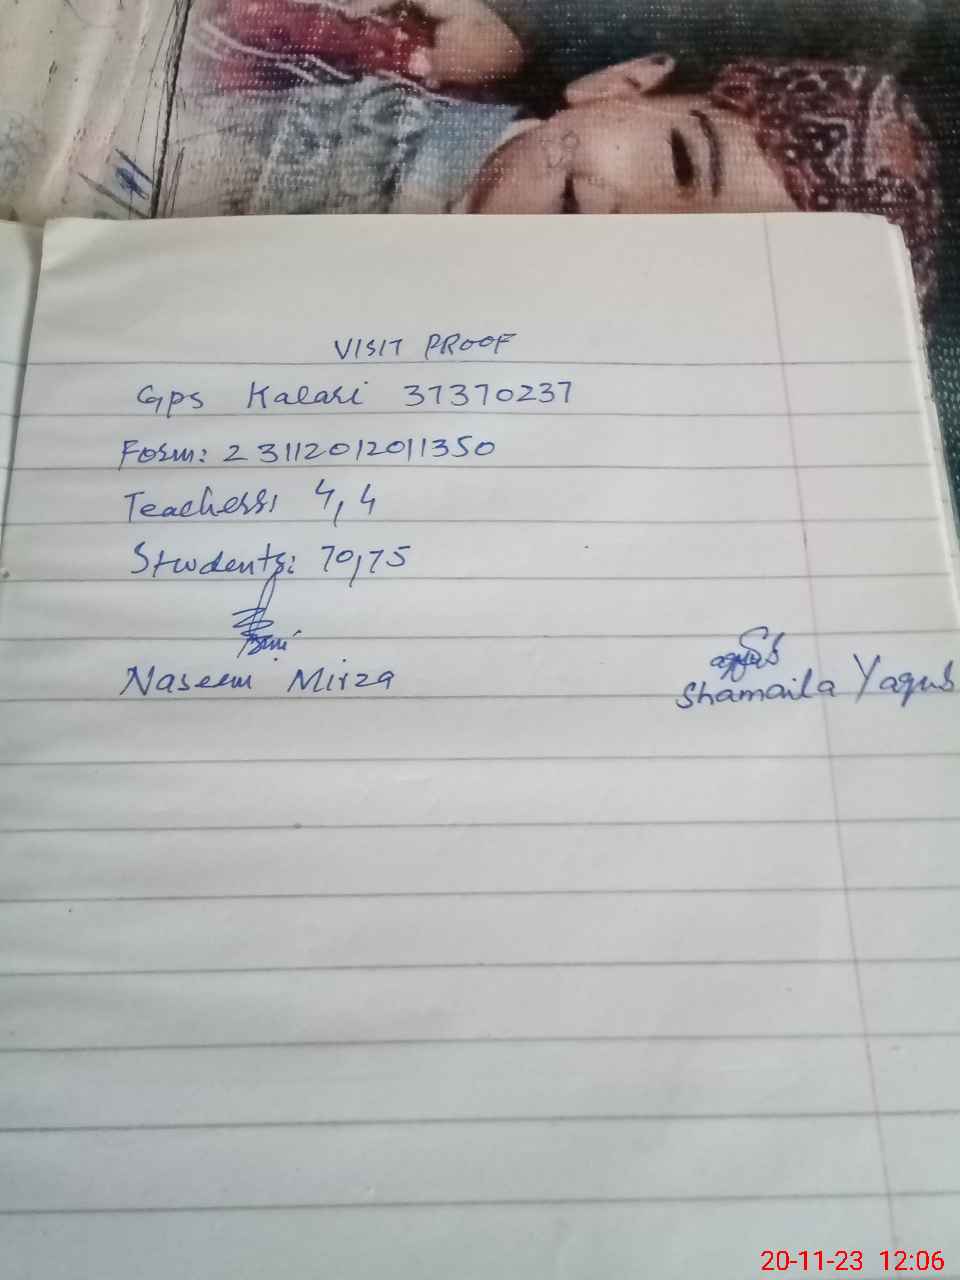 VISIT PROOF
GPS Kalari 37370237
Form: 2 3112012011350
Teachers: 4, 4
Students: 70, 75
Naseem Mirza
Shamaila Yaqub
20-11-23 12:06